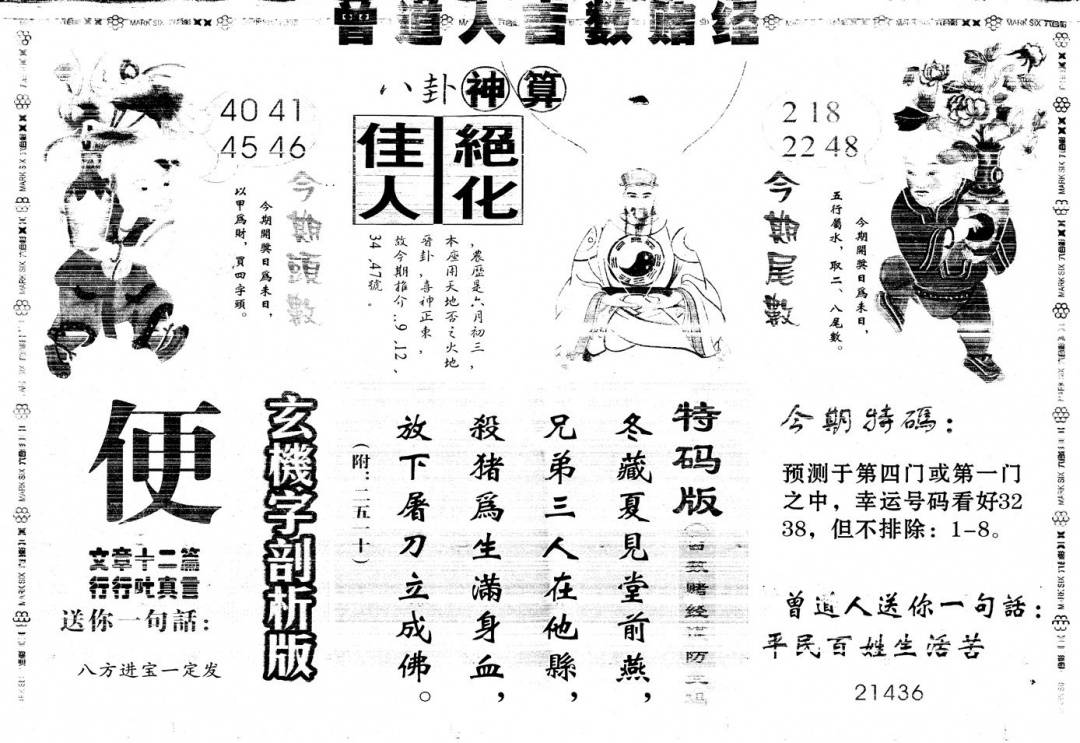 曾道人言数赌经
八卦神算
40 41
45 46
今期頭數
今期開獎日爲未日，
以甲爲財，買四字頭。
絕化
佳人
，農歷是六月初三，
本座用天地否之火地
晉卦，喜神正東，
故今期推介：.9 .12、
34 .47號。
2 18
22 48
今期尾數
今期開獎日爲未日，
五行屬水，取二、八尾數。
便
文章十二篇
行行吐真言
送你一句話：
八方进宝一定发
玄機字剖析版
特码版
冬藏夏見堂前燕，
兄弟三人在他縣，
殺猪爲生滿身血，
放下屠刀立成佛。
（附：二五一十）
今期特碼：
预测于第四门或第一门
之中，幸运号码看好32
38，但不排除：1-8。
曾道人送你一句話：
平民百姓生活苦
21436